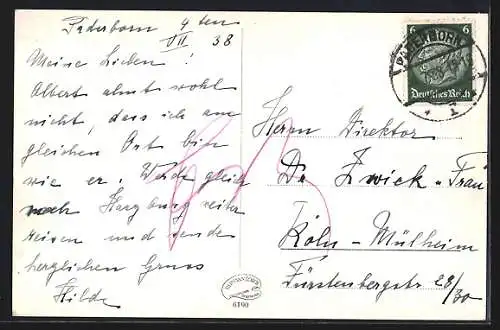 Paderborn 4ten
VII 38
Meine Lieben!
Albert ahnt wohl
nicht, dass ich am
gleichen Ort bin
wie er. Werde gleich
nach Harzburg weiter
reisen und sende
herzlichen Gruss
Hilde
6 6
Deutsches Reich
PADERBORN
1
Herrn Direktor
Dr Zwick u Frau
Köln-Mülheim
Fürstenbergstr 28/30
6190